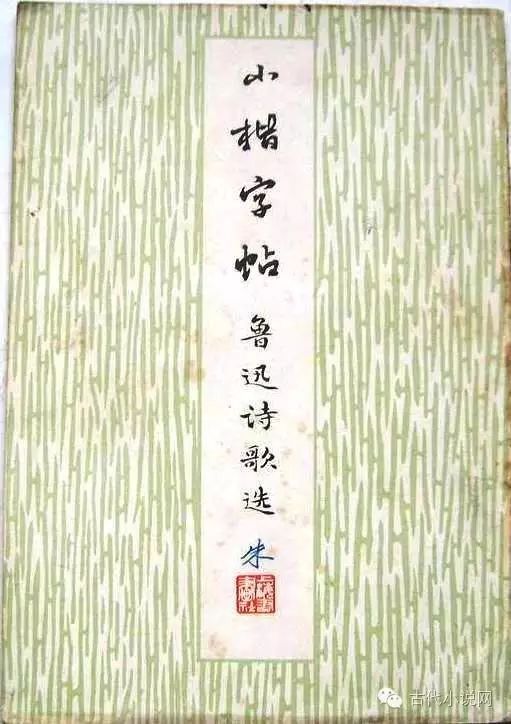 小楷字帖
鲁迅诗歌选
朱
古代小说网